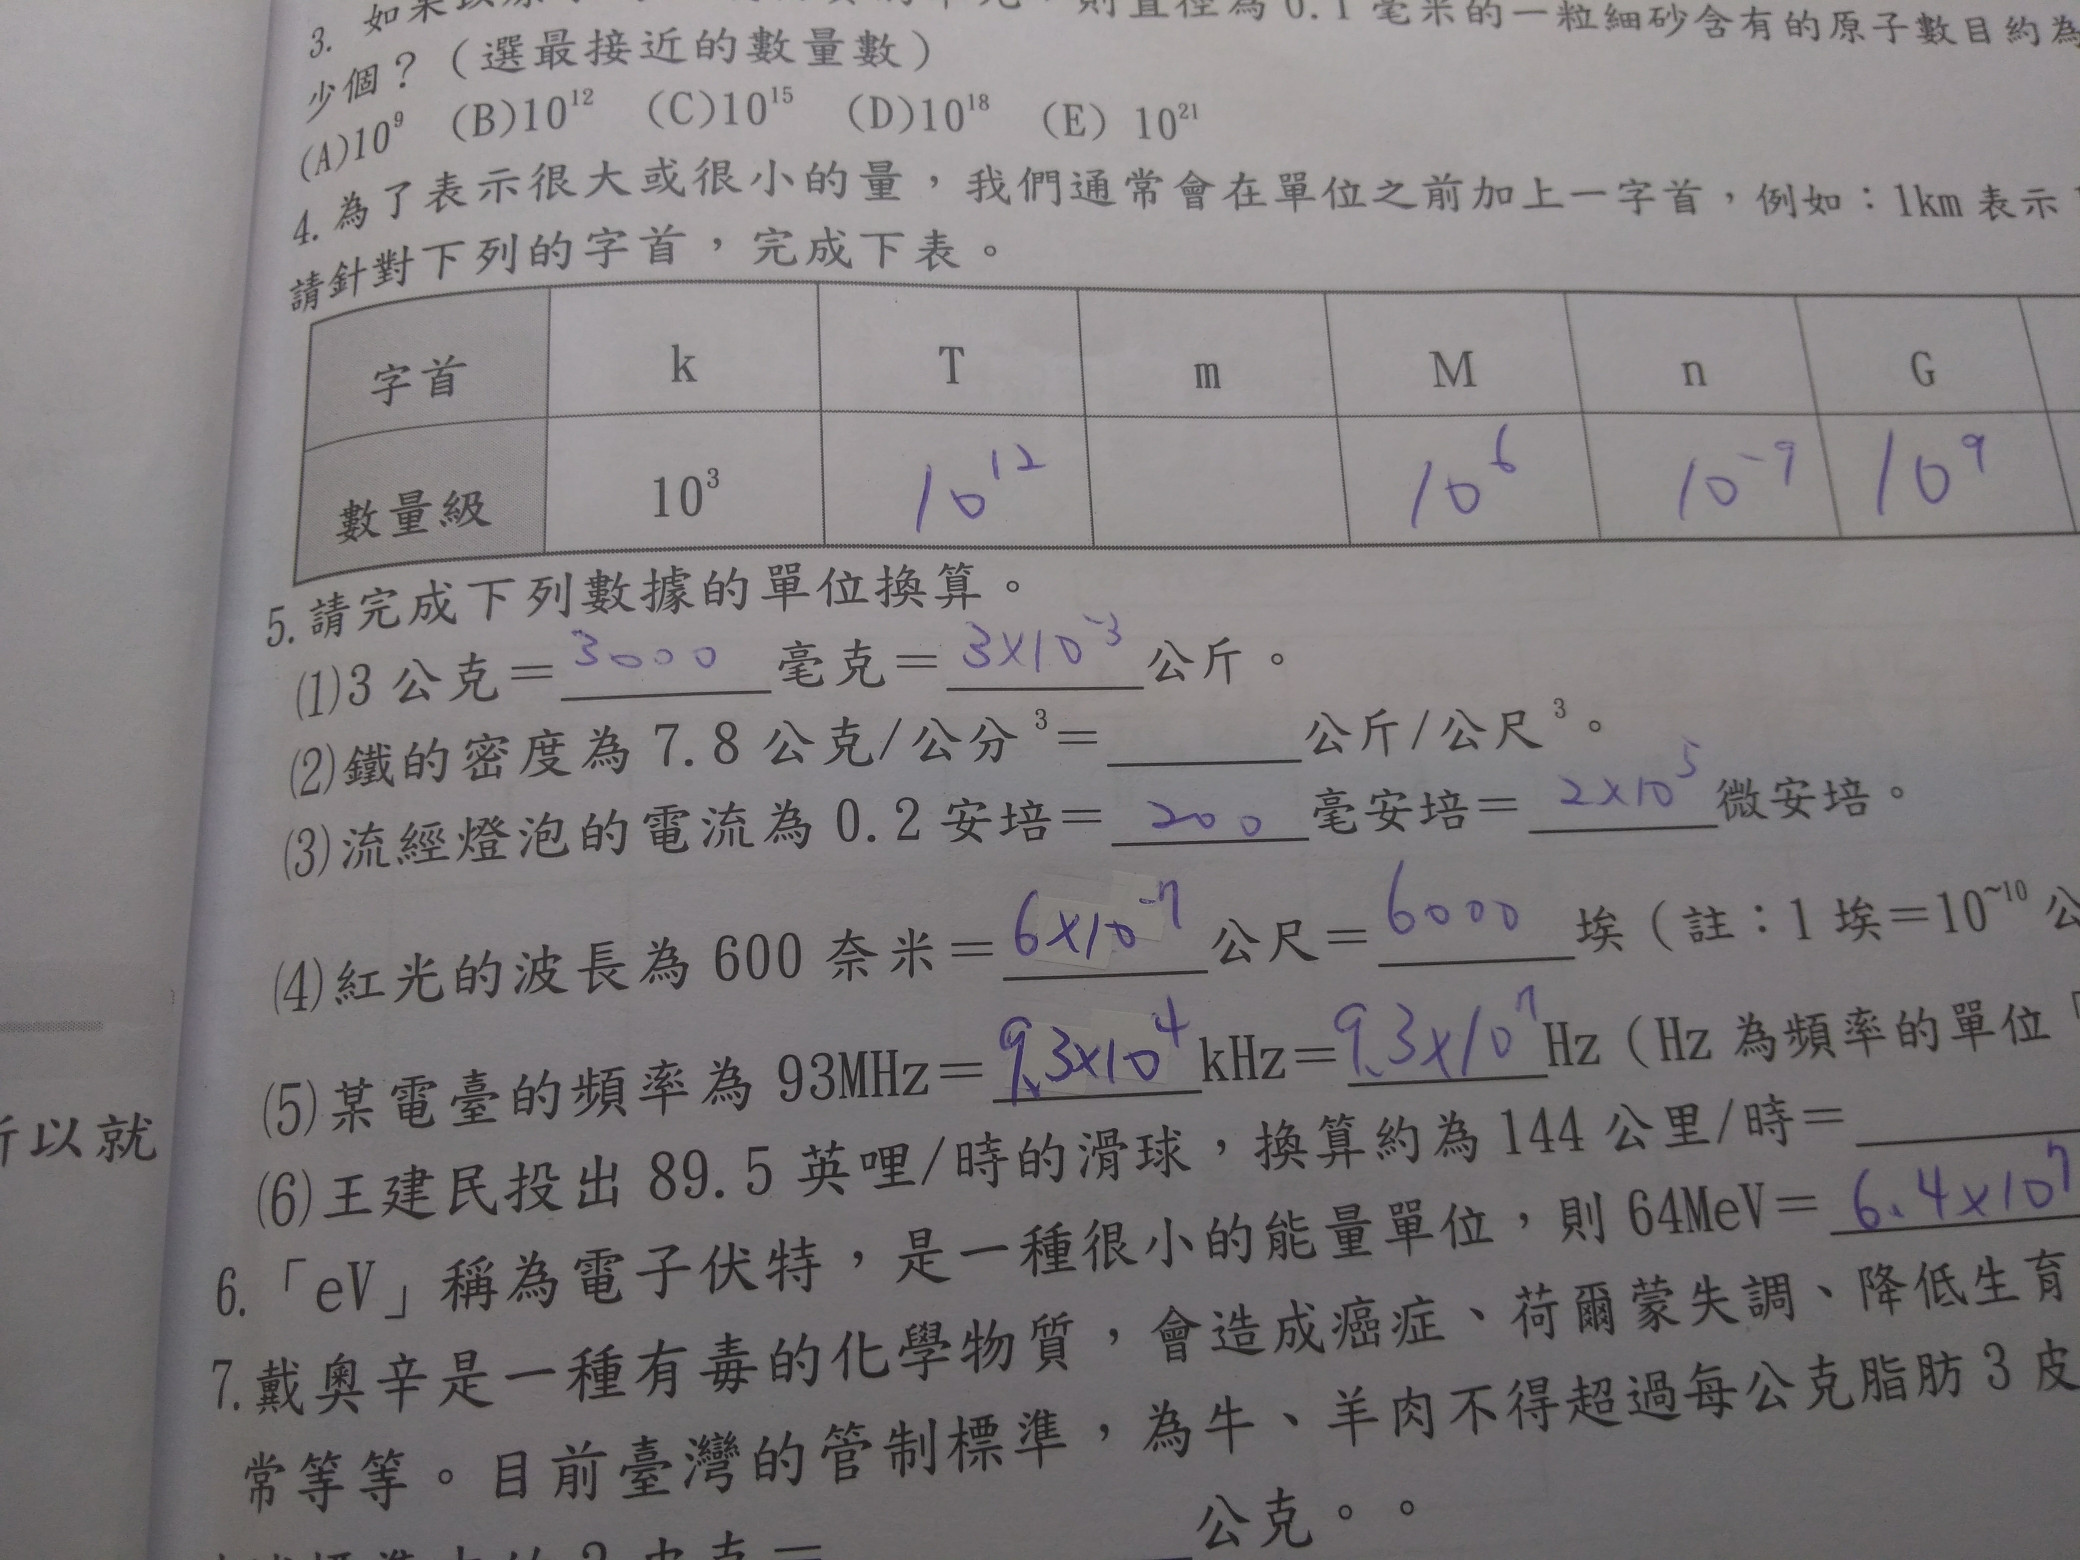 3. 如果以原子 則直徑為 0.1 毫米的一粒細砂含有的原子數目約為
少個？（選最接近的數量數）
(A)10⁹ (B)10¹² (C)10¹⁵ (D)10¹⁸ (E) 10²¹
4. 為了表示很大或很小的量，我們通常會在單位之前加上一字首，例如：1km 表示
請針對下列的字首，完成下表。
字首 k T m M n G
數量級 10³ 10¹² 10⁶ 10⁻⁹ 10⁹
5. 請完成下列數據的單位換算。
(1)3 公克＝3000 毫克＝3×10⁻³公斤。
(2)鐵的密度為 7.8 公克/公分³＝______公斤/公尺³。
(3)流經燈泡的電流為 0.2 安培＝200毫安培＝2×10⁵微安培。
(4)紅光的波長為 600 奈米＝6×10⁻⁷公尺＝6000埃（註：1 埃＝10~¹⁰ 公
(5)某電臺的頻率為 93MHz＝9.3×10⁴kHz＝9.3×10⁷Hz（Hz 為頻率的單位「
(6)王建民投出 89.5 英哩/時的滑球，換算約為 144 公里/時＝______
6.「eV」稱為電子伏特，是一種很小的能量單位，則 64MeV＝6.4×10⁷
7. 戴奧辛是一種有毒的化學物質，會造成癌症、荷爾蒙失調、降低生育
常等等。目前臺灣的管制標準，為牛、羊肉不得超過每公克脂肪 3 皮
標準中的 3 皮克＝______公克。。
所以就